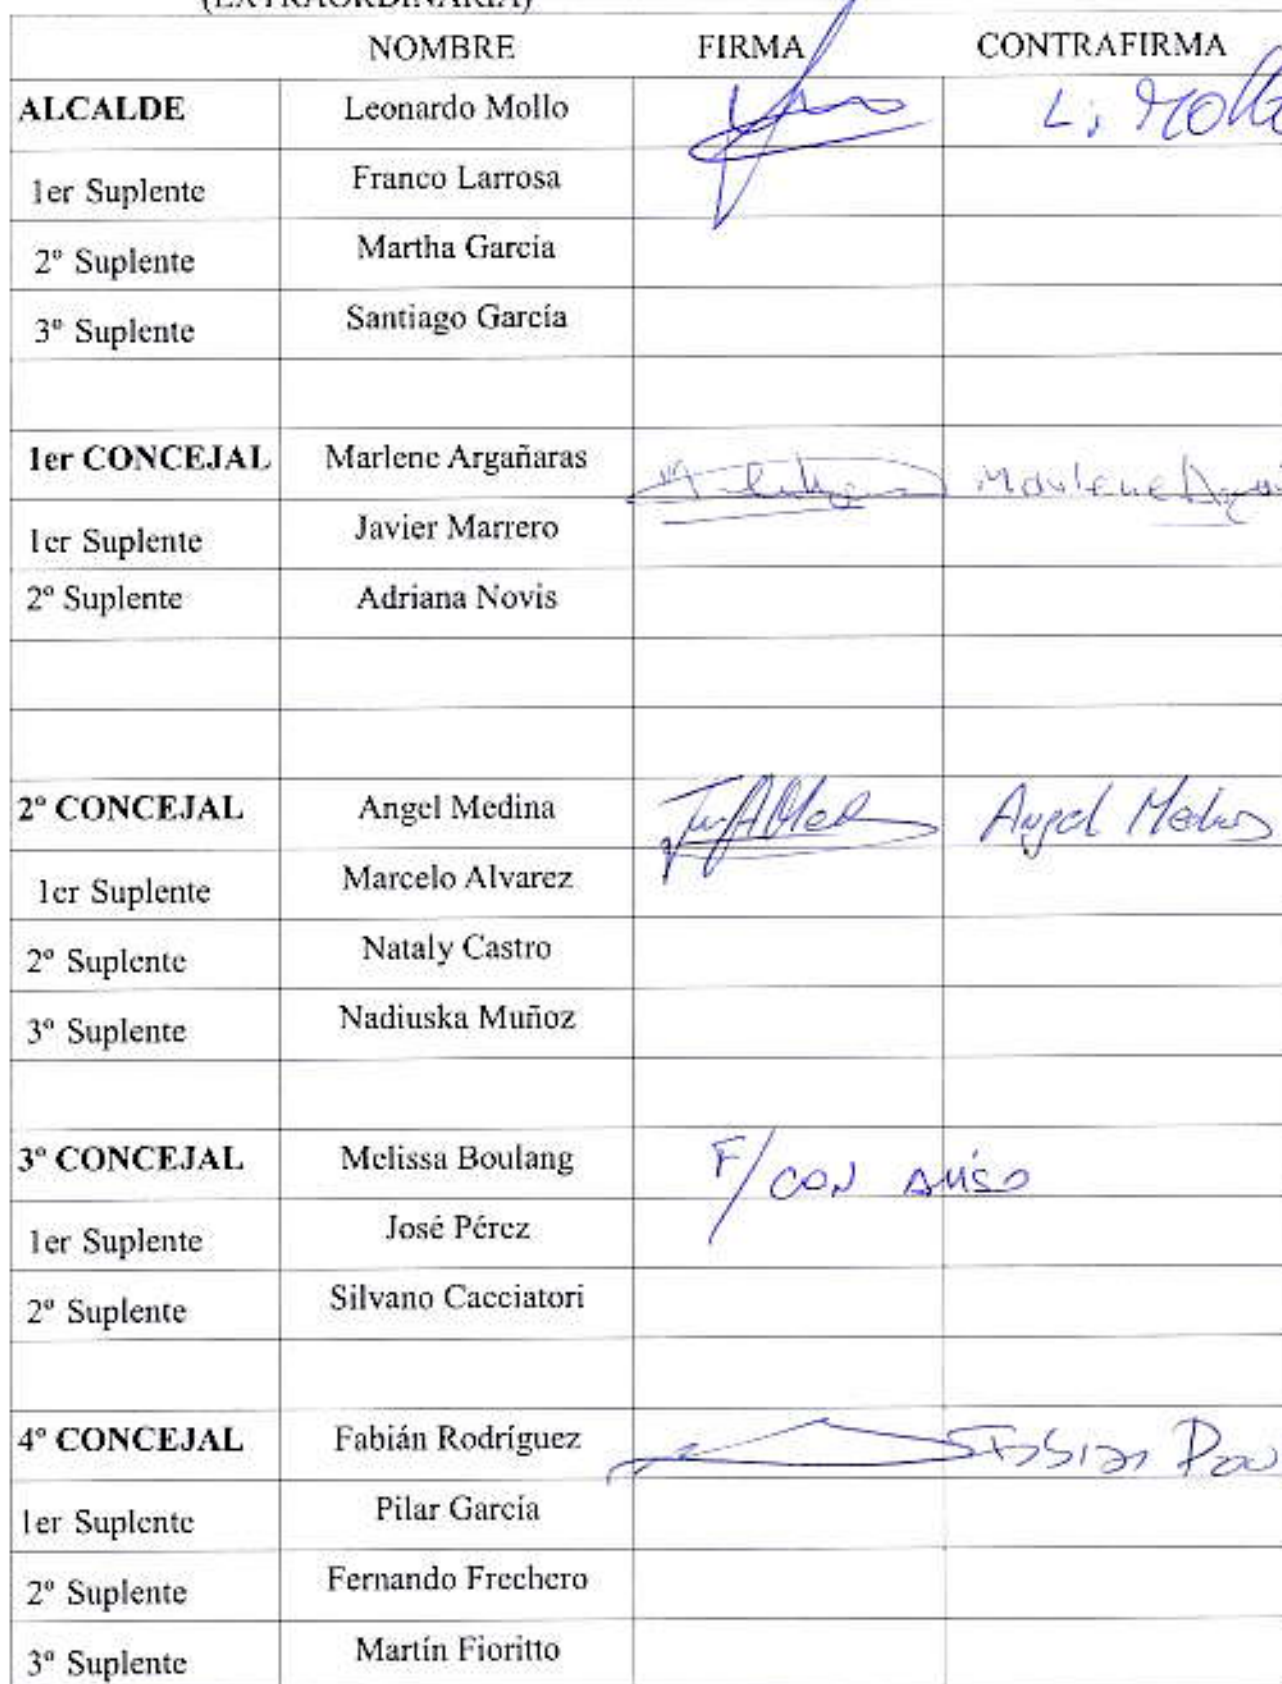 (EXTRAORDINARIA)
NOMBRE FIRMA CONTRAFIRMA
ALCALDE Leonardo Mollo L. Mollo
1er Suplente Franco Larrosa
2º Suplente Martha García
3º Suplente Santiago García
1er CONCEJAL Marlene Argañaras Marlene
1er Suplente Javier Marrero
2º Suplente Adriana Novis
2º CONCEJAL Angel Medina Angel Medina
1er Suplente Marcelo Alvarez
2º Suplente Nataly Castro
3º Suplente Nadiuska Muñoz
3º CONCEJAL Melissa Boulang F/ CON AVISO
1er Suplente José Pérez
2º Suplente Silvano Cacciatori
4º CONCEJAL Fabián Rodríguez Fabian
1er Suplente Pilar García
2º Suplente Fernando Frechero
3º Suplente Martín Fioritto